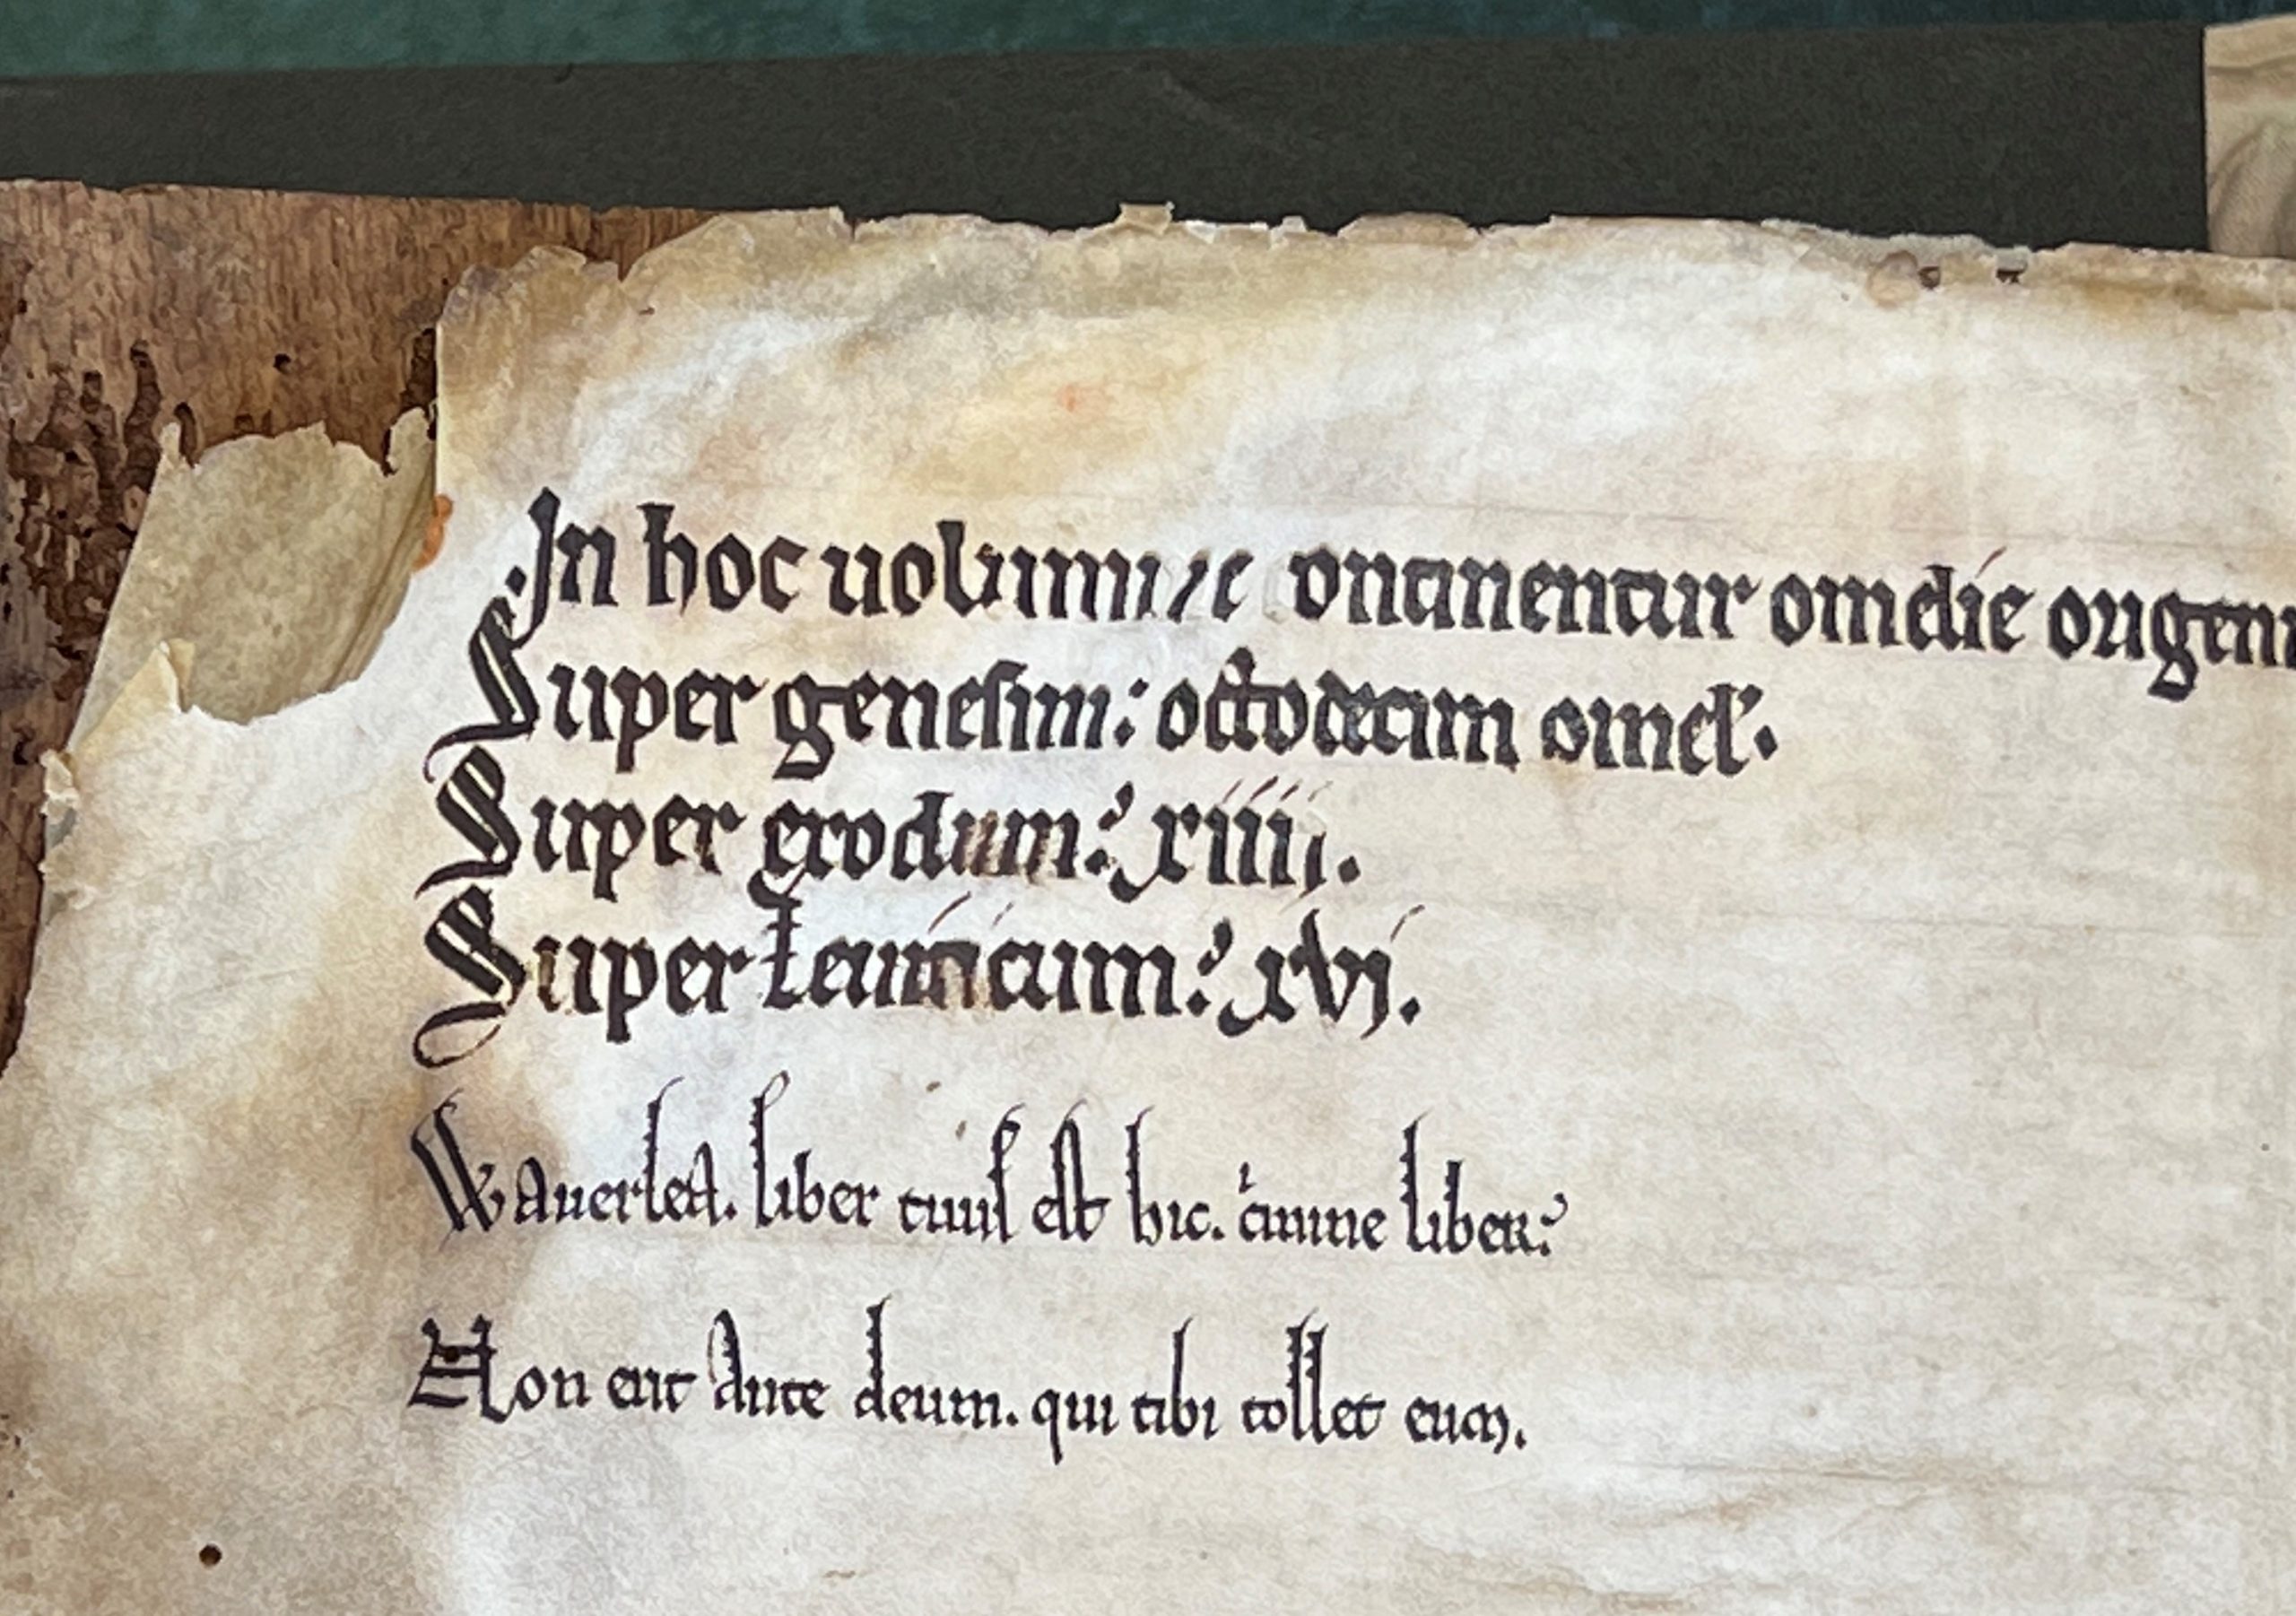 .In hoc uolumine ontinentur omelie origeni
Super genesim: octodecim omel'.
Super exodum: xiiij.
Super Leuiticum: xvi.
Wauerlea. liber tuus est hic. liber:
Non erit ante deum. qui tibi tollet eum.